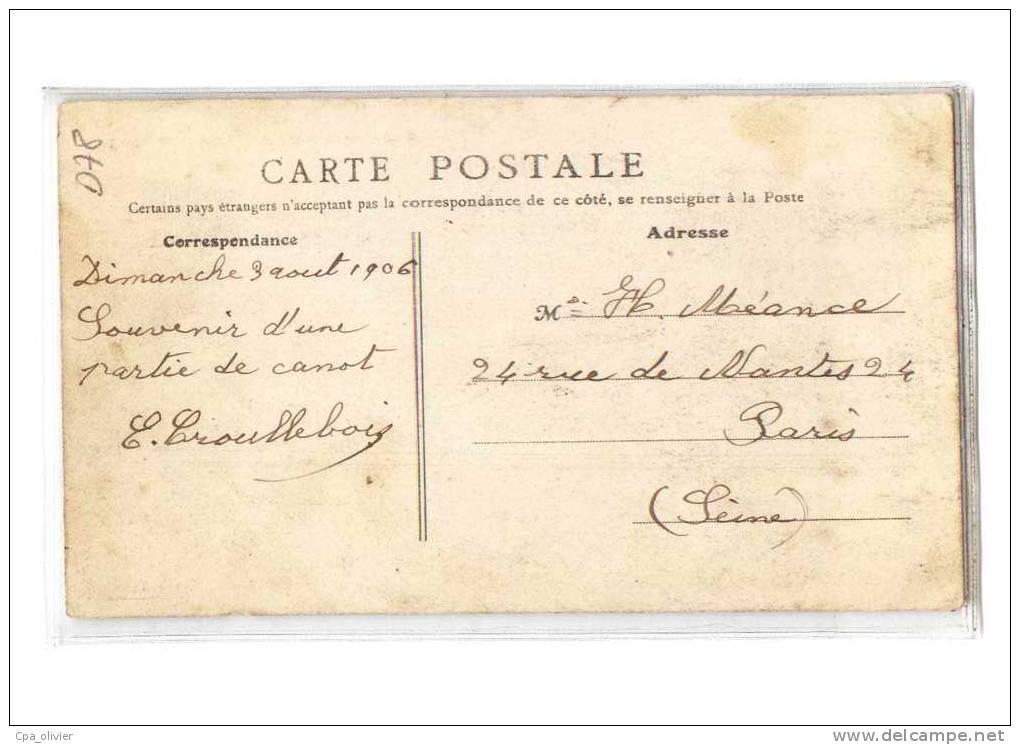 D78
CARTE POSTALE
Certains pays étrangers n'acceptant pas la correspondance de ce côté, se renseigner à la Poste
Correspondance
Dimanche 3 aout 1906
Souvenir d'une
partie de canot
E. Troullebois
Adresse
M H. Méance
24 rue de Nantes 24
Paris
(Seine)
Cpa_olivier
www.delcampe.net